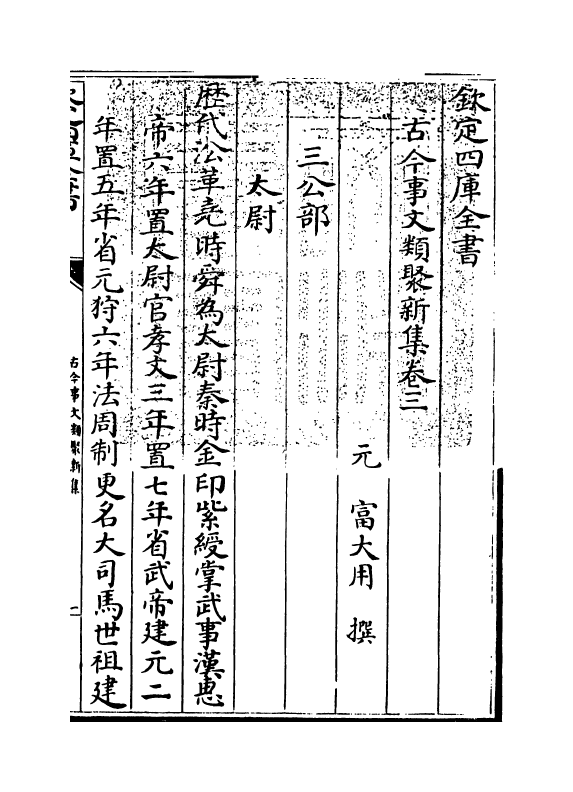 欽定四庫全書
古今事文類聚新集卷三
元 富大用 撰
三公部
太尉
歴代沿革堯時舜為太尉秦時金印紫綬掌武事漢惠
帝六年置太尉官孝文三年置七年省武帝建元二
年置五年省元狩六年法周制更名大司馬世祖建
古今事文類聚新集